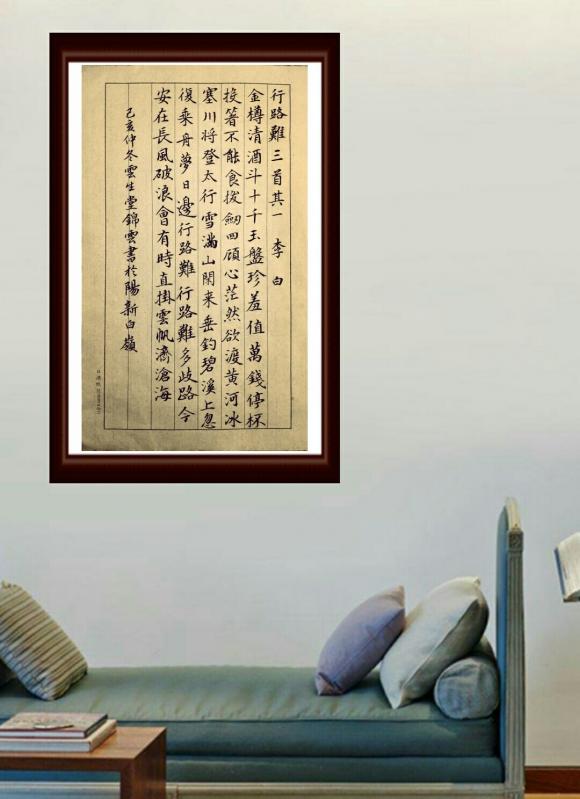 行路難三首其一 李白
金樽清酒斗十千玉盤珍羞值萬錢停杯
投箸不能食拔劍四顧心茫然欲渡黄河冰
塞川将登太行雪滿山閑来垂釣碧溪上忽
復乘舟夢日邊行路難行路難多歧路今
安在長風破浪會有時直掛雲帆濟滄海
己亥仲冬雲生堂錦雲書於陽新白嶺